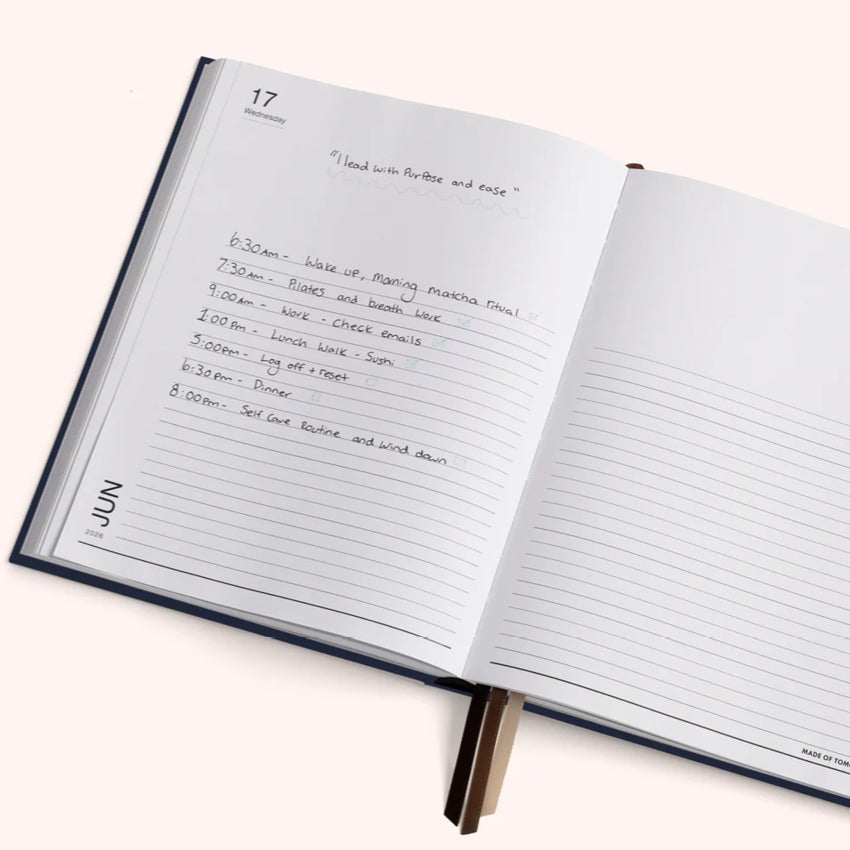 17
Wednesday
"I lead with Purpose and ease"
6:30Am - Wake up, morning matcha ritual
7:30Am - Pilates and breath work
9:00Am - Work - Check emails
1:00Pm - Lunch Walk - Sushi
5:00Pm - Log off + reset
6:30Pm - Dinner
8:00Pm - Self Care Routine and Wind down
JUN
2026
MADE OF TOMO